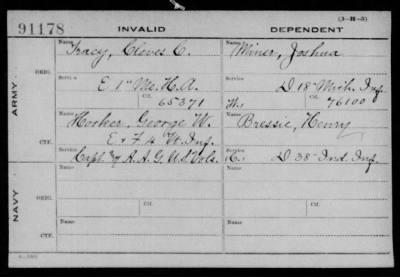 (3-H-3)
91178 INVALID DEPENDENT
Name Tracy, Cleves C. Name Miner, Joshua
ORIG.
Service E 1" Me. H. A. Service D 18" Mich. Inf.
Ctf. 65371 W. Ctf. 76100
ARMY.
Name Hooker, George W. Name Bressie, Henry
CTF.
E & F 4 Vt. Inf.
Service Capt. & A. A. G. U.S. Vols. Service D 38" Ind. Inf.
Name Ctf. Name Ctf.
ORIG.
Service Service
NAVY.
Name Name
CTF.
Service Service